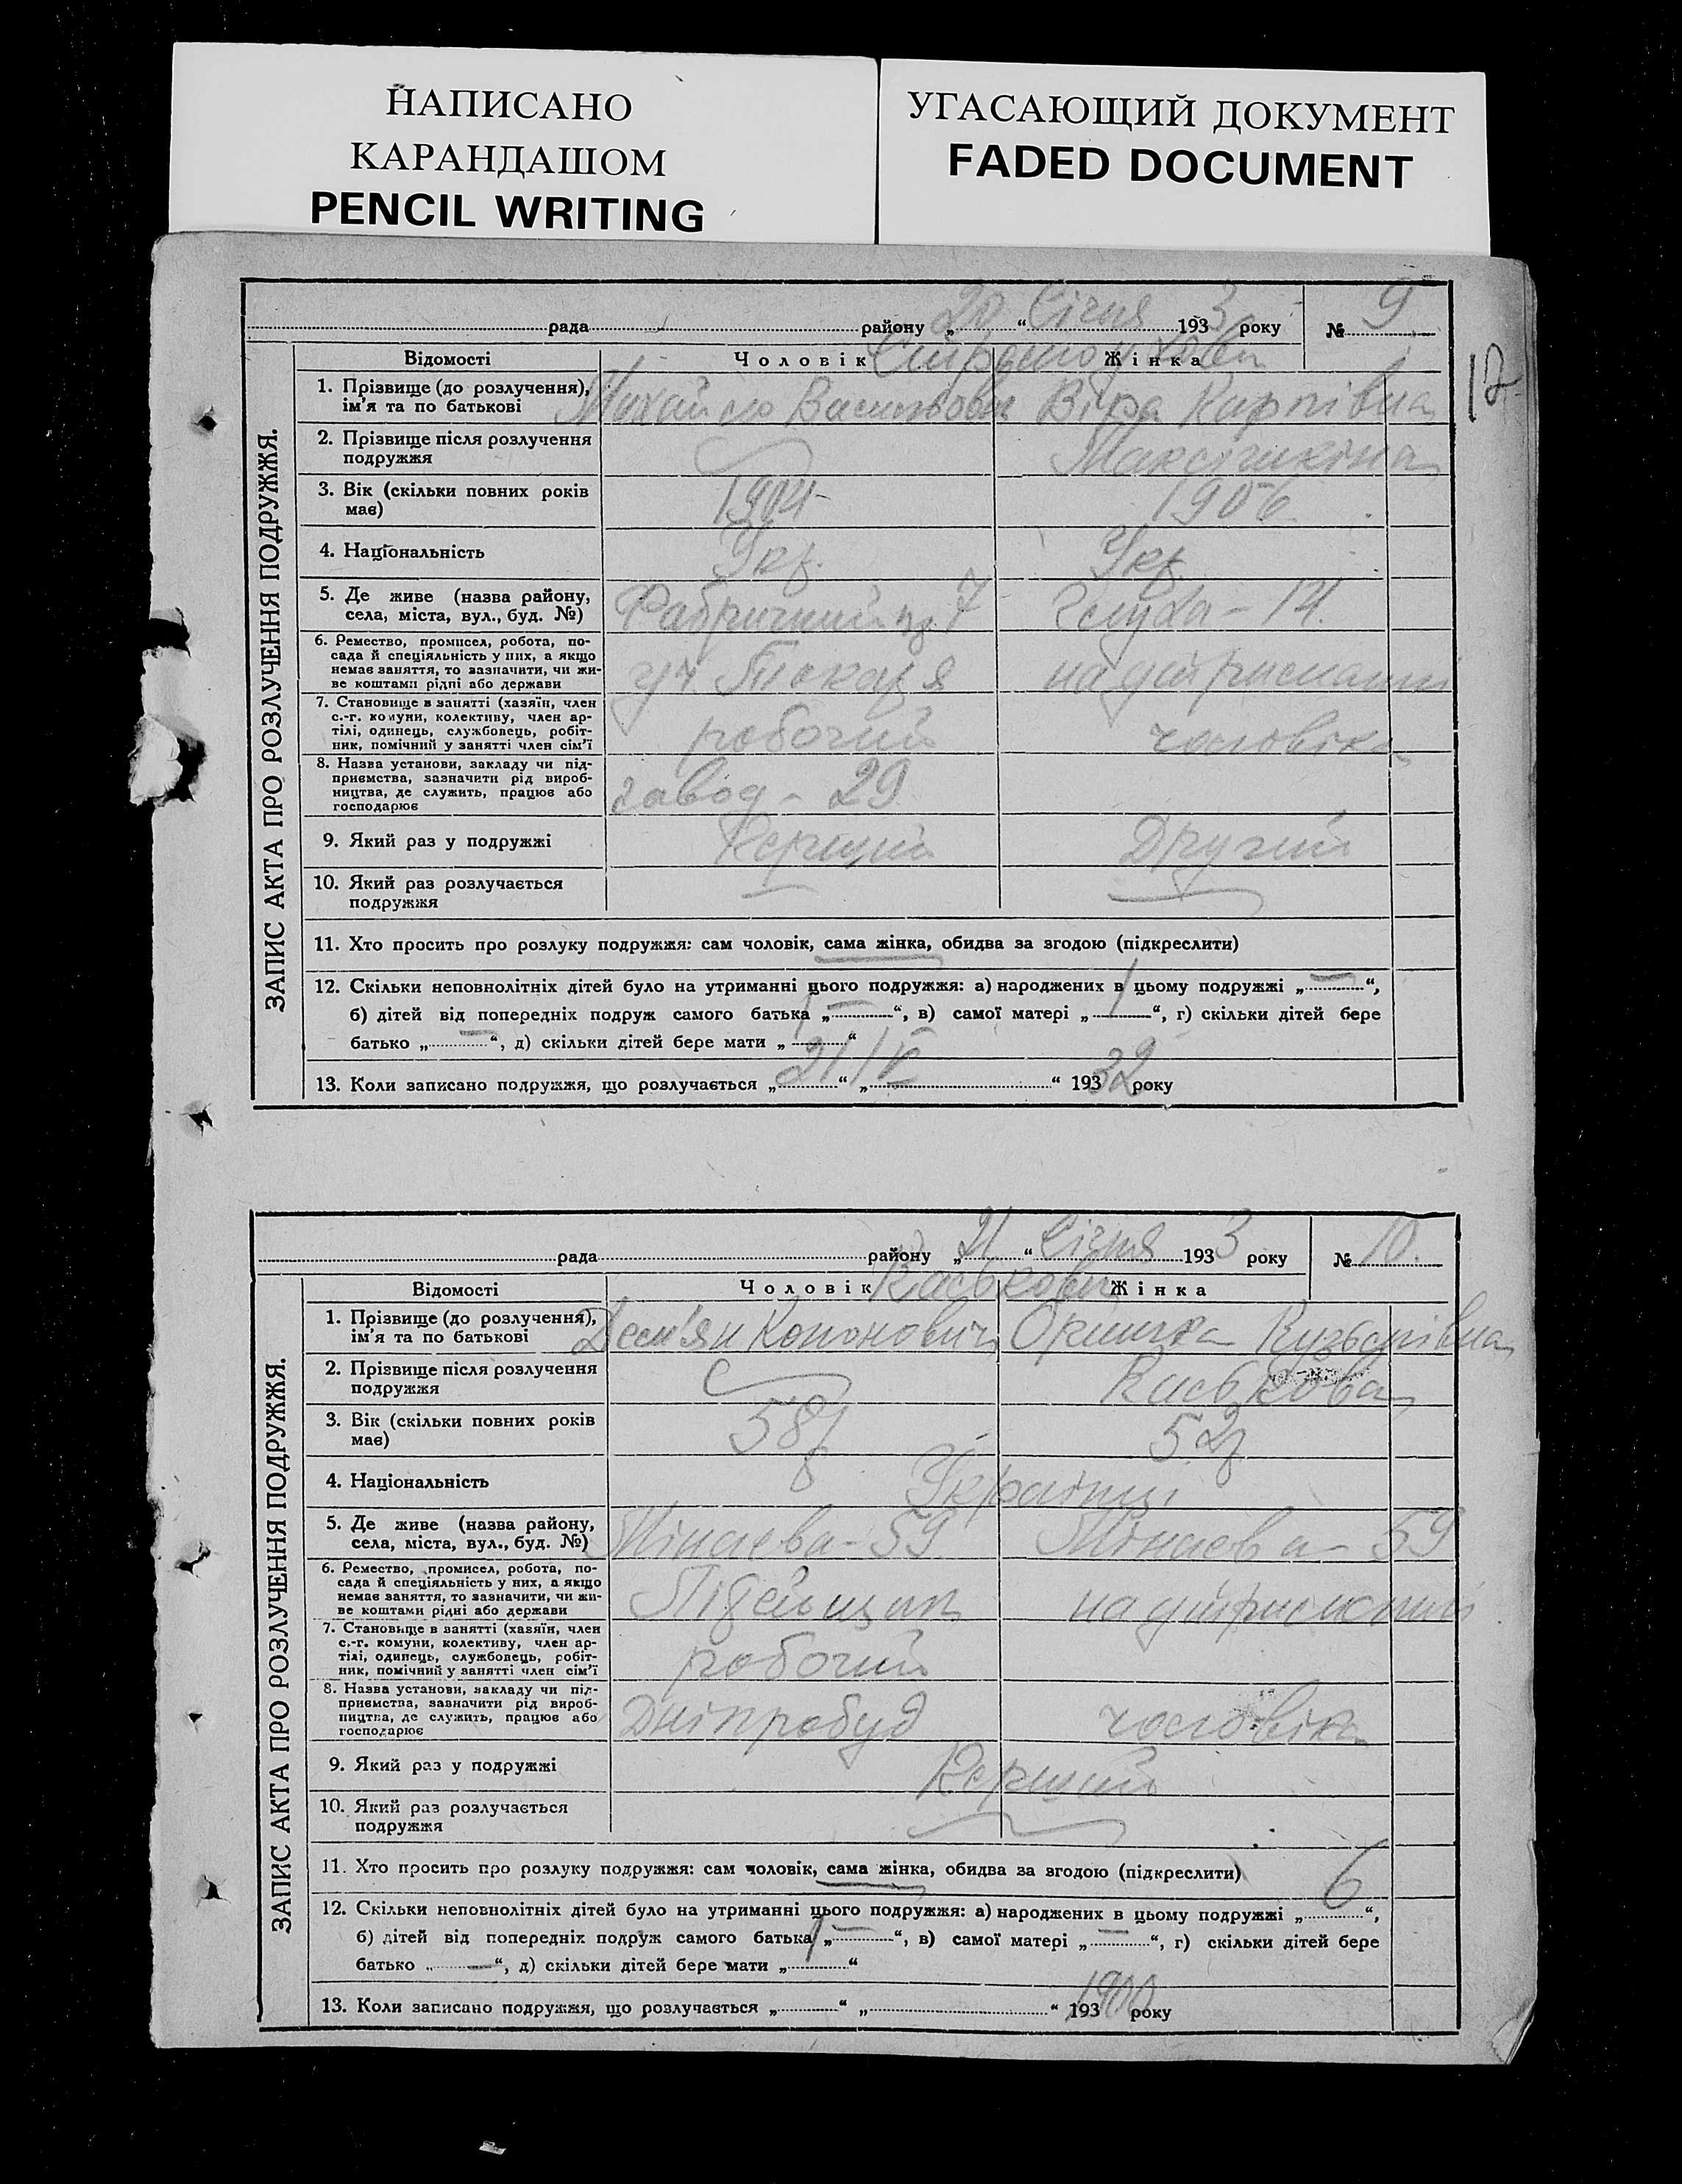 НАПИСАНО
КАРАНДАШОМ
PENCIL WRITING
УГАСАЮЩИЙ ДОКУМЕНТ
FADED DOCUMENT
ЗАПИС АКТА ПРО РОЗЛУЧЕННЯ ПОДРУЖЖЯ.
рада району „20“ Січня 1933 року № 9
Відомості Чоловік Жінка
17
1. Прізвище (до розлучення), Михайло Васильович Віра Карпівна
ім'я та по батькові
2. Прізвище після розлучення
подружжя
3. Вік (скільки повних років 1904 1906
має)
4. Національність Укр. Укр.
5. Де живе (назва району, Фабричний 7 14
села, міста, вул., буд. №)
6. Ремество, промисел, робота, по-
сада й спеціяльність у них, а якщо уч. Токаря на утриманні
немає заняття, то зазначити, чи жи-
ве коштами рідні або держави
7. Становище в занятті (хазяїн, член
с.-г. комуни, колективу, член ар-
тілі, одинець, службовець, робіт- робочий чоловіка
ник, помічний у занятті член сім'ї
8. Назва установи, закладу чи під-
приємства, зазначити рід вироб- завод - 29
ництва, де служить, працює або
господарює
9. Який раз у подружжі Перший Другий
10. Який раз розлучається
подружжя
11. Хто просить про розлуку подружжя: сам чоловік, сама жінка, обидва за згодою (підкреслити)
12. Скільки неповнолітніх дітей було на утриманні цього подружжя: а) народжених в цьому подружжі „—“,
б) дітей від попередніх подруж самого батька „—“, в) самої матері „1“, г) скільки дітей бере
батько „—“, д) скільки дітей бере мати „ “
13. Коли записано подружжя, що розлучається „21“ „ “ 193 32 року
ЗАПИС АКТА ПРО РОЗЛУЧЕННЯ ПОДРУЖЖЯ.
рада району „21“ Січня 1933 року № 10.
Відомості Чоловік Жінка
Каськови
1. Прізвище (до розлучення), Дем'ян Кононович Кузьмівна
ім'я та по батькові
2. Прізвище після розлучення Каськова
подружжя
3. Вік (скільки повних років 58р 52р
має)
4. Національність Українці
5. Де живе (назва району, Мінаєва - 59 Мінаєва - 59
села, міста, вул., буд. №)
6. Ремество, промисел, робота, по-
сада й спеціяльність у них, а якщо на утриманні
немає заняття, то зазначити, чи жи-
ве коштами рідні або держави
7. Становище в занятті (хазяїн, член
с.-г. комуни, колективу, член ар-
тілі, одинець, службовець, робіт- робочий
ник, помічний у занятті член сім'ї
8. Назва установи, закладу чи під-
приємства, зазначити рід вироб- Дніпробуд чоловіка
ництва, де служить, працює або
господарює
9. Який раз у подружжі Перший
10. Який раз розлучається
подружжя
11. Хто просить про розлуку подружжя: сам чоловік, сама жінка, обидва за згодою (підкреслити)
12. Скільки неповнолітніх дітей було на утриманні цього подружжя: а) народжених в цьому подружжі „6“,
б) дітей від попередніх подруж самого батька „—“, в) самої матері „—“, г) скільки дітей бере
батько „—“, д) скільки дітей бере мати „ “
13. Коли записано подружжя, що розлучається „ “ „ “ 193 1900 року